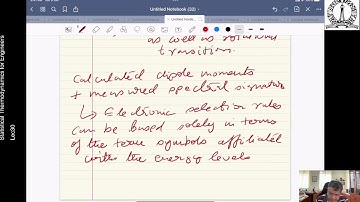 Untitled Notebook (32)
as well as rotational
transition.
Calculated dipole moments
+ measured spectral signature
↳ Electronic selection rules
can be based solely in terms
of the term symbols affiliated
with the energy levels
Statistical Thermodynamics for Engineers
Lec39